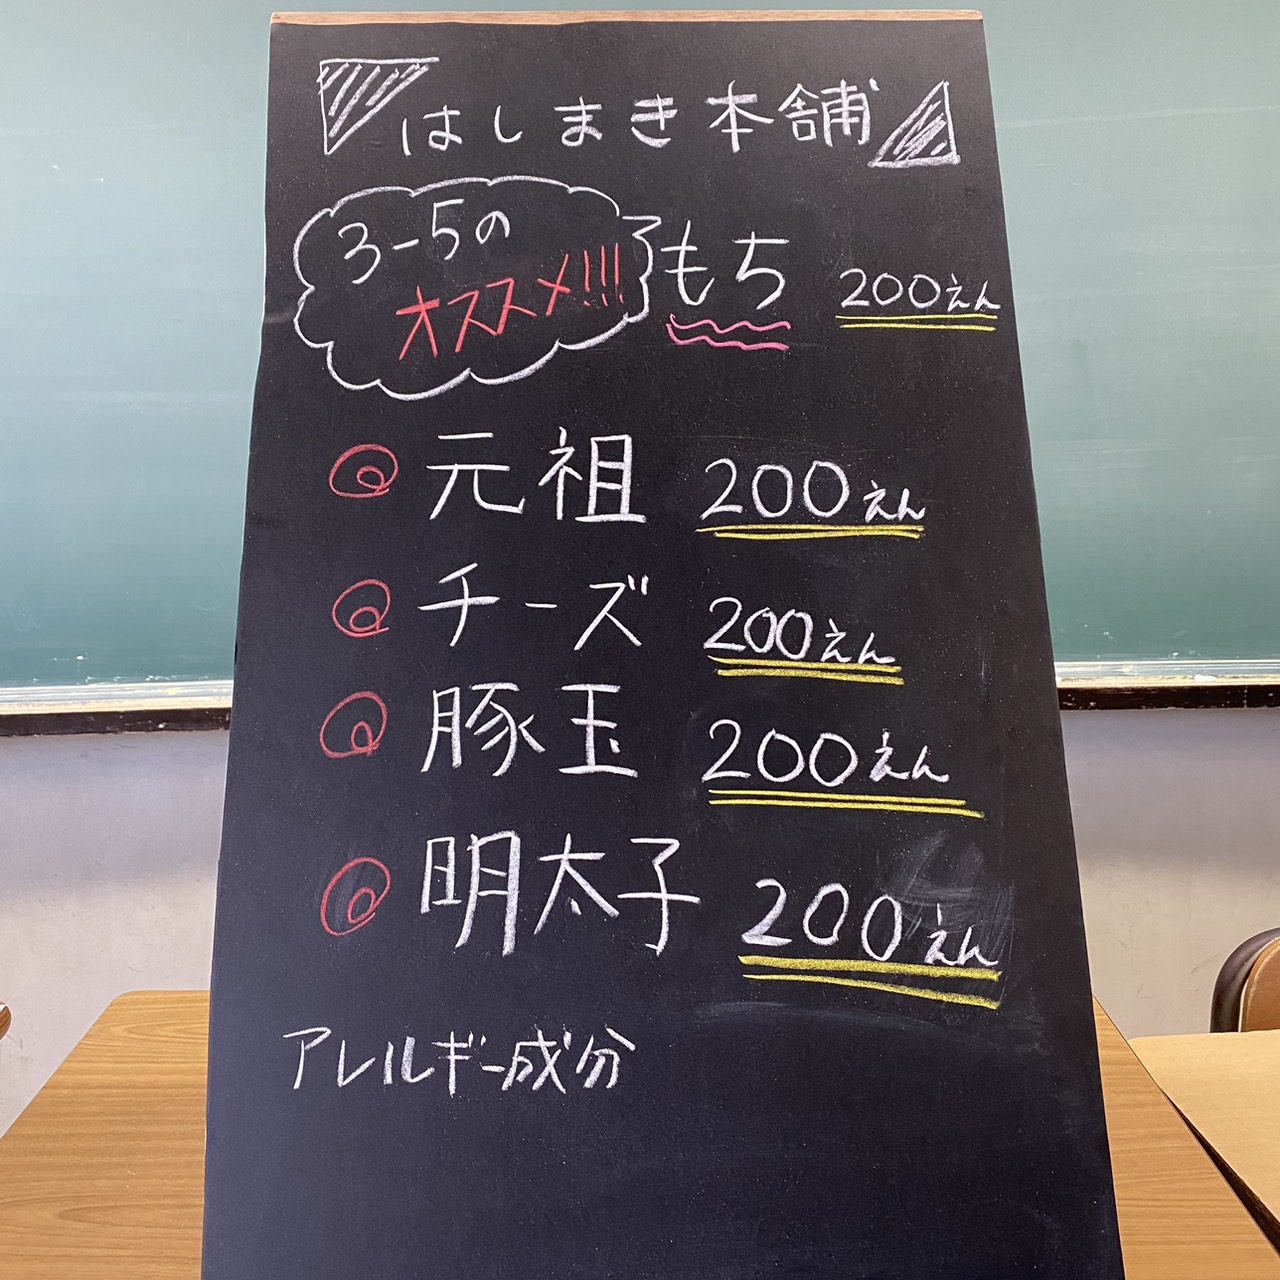 はしまき本舗
3-5の
オススメ!!!
もち 200えん
元祖 200えん
チーズ 200えん
豚玉 200えん
明太子 200えん
アレルギー成分